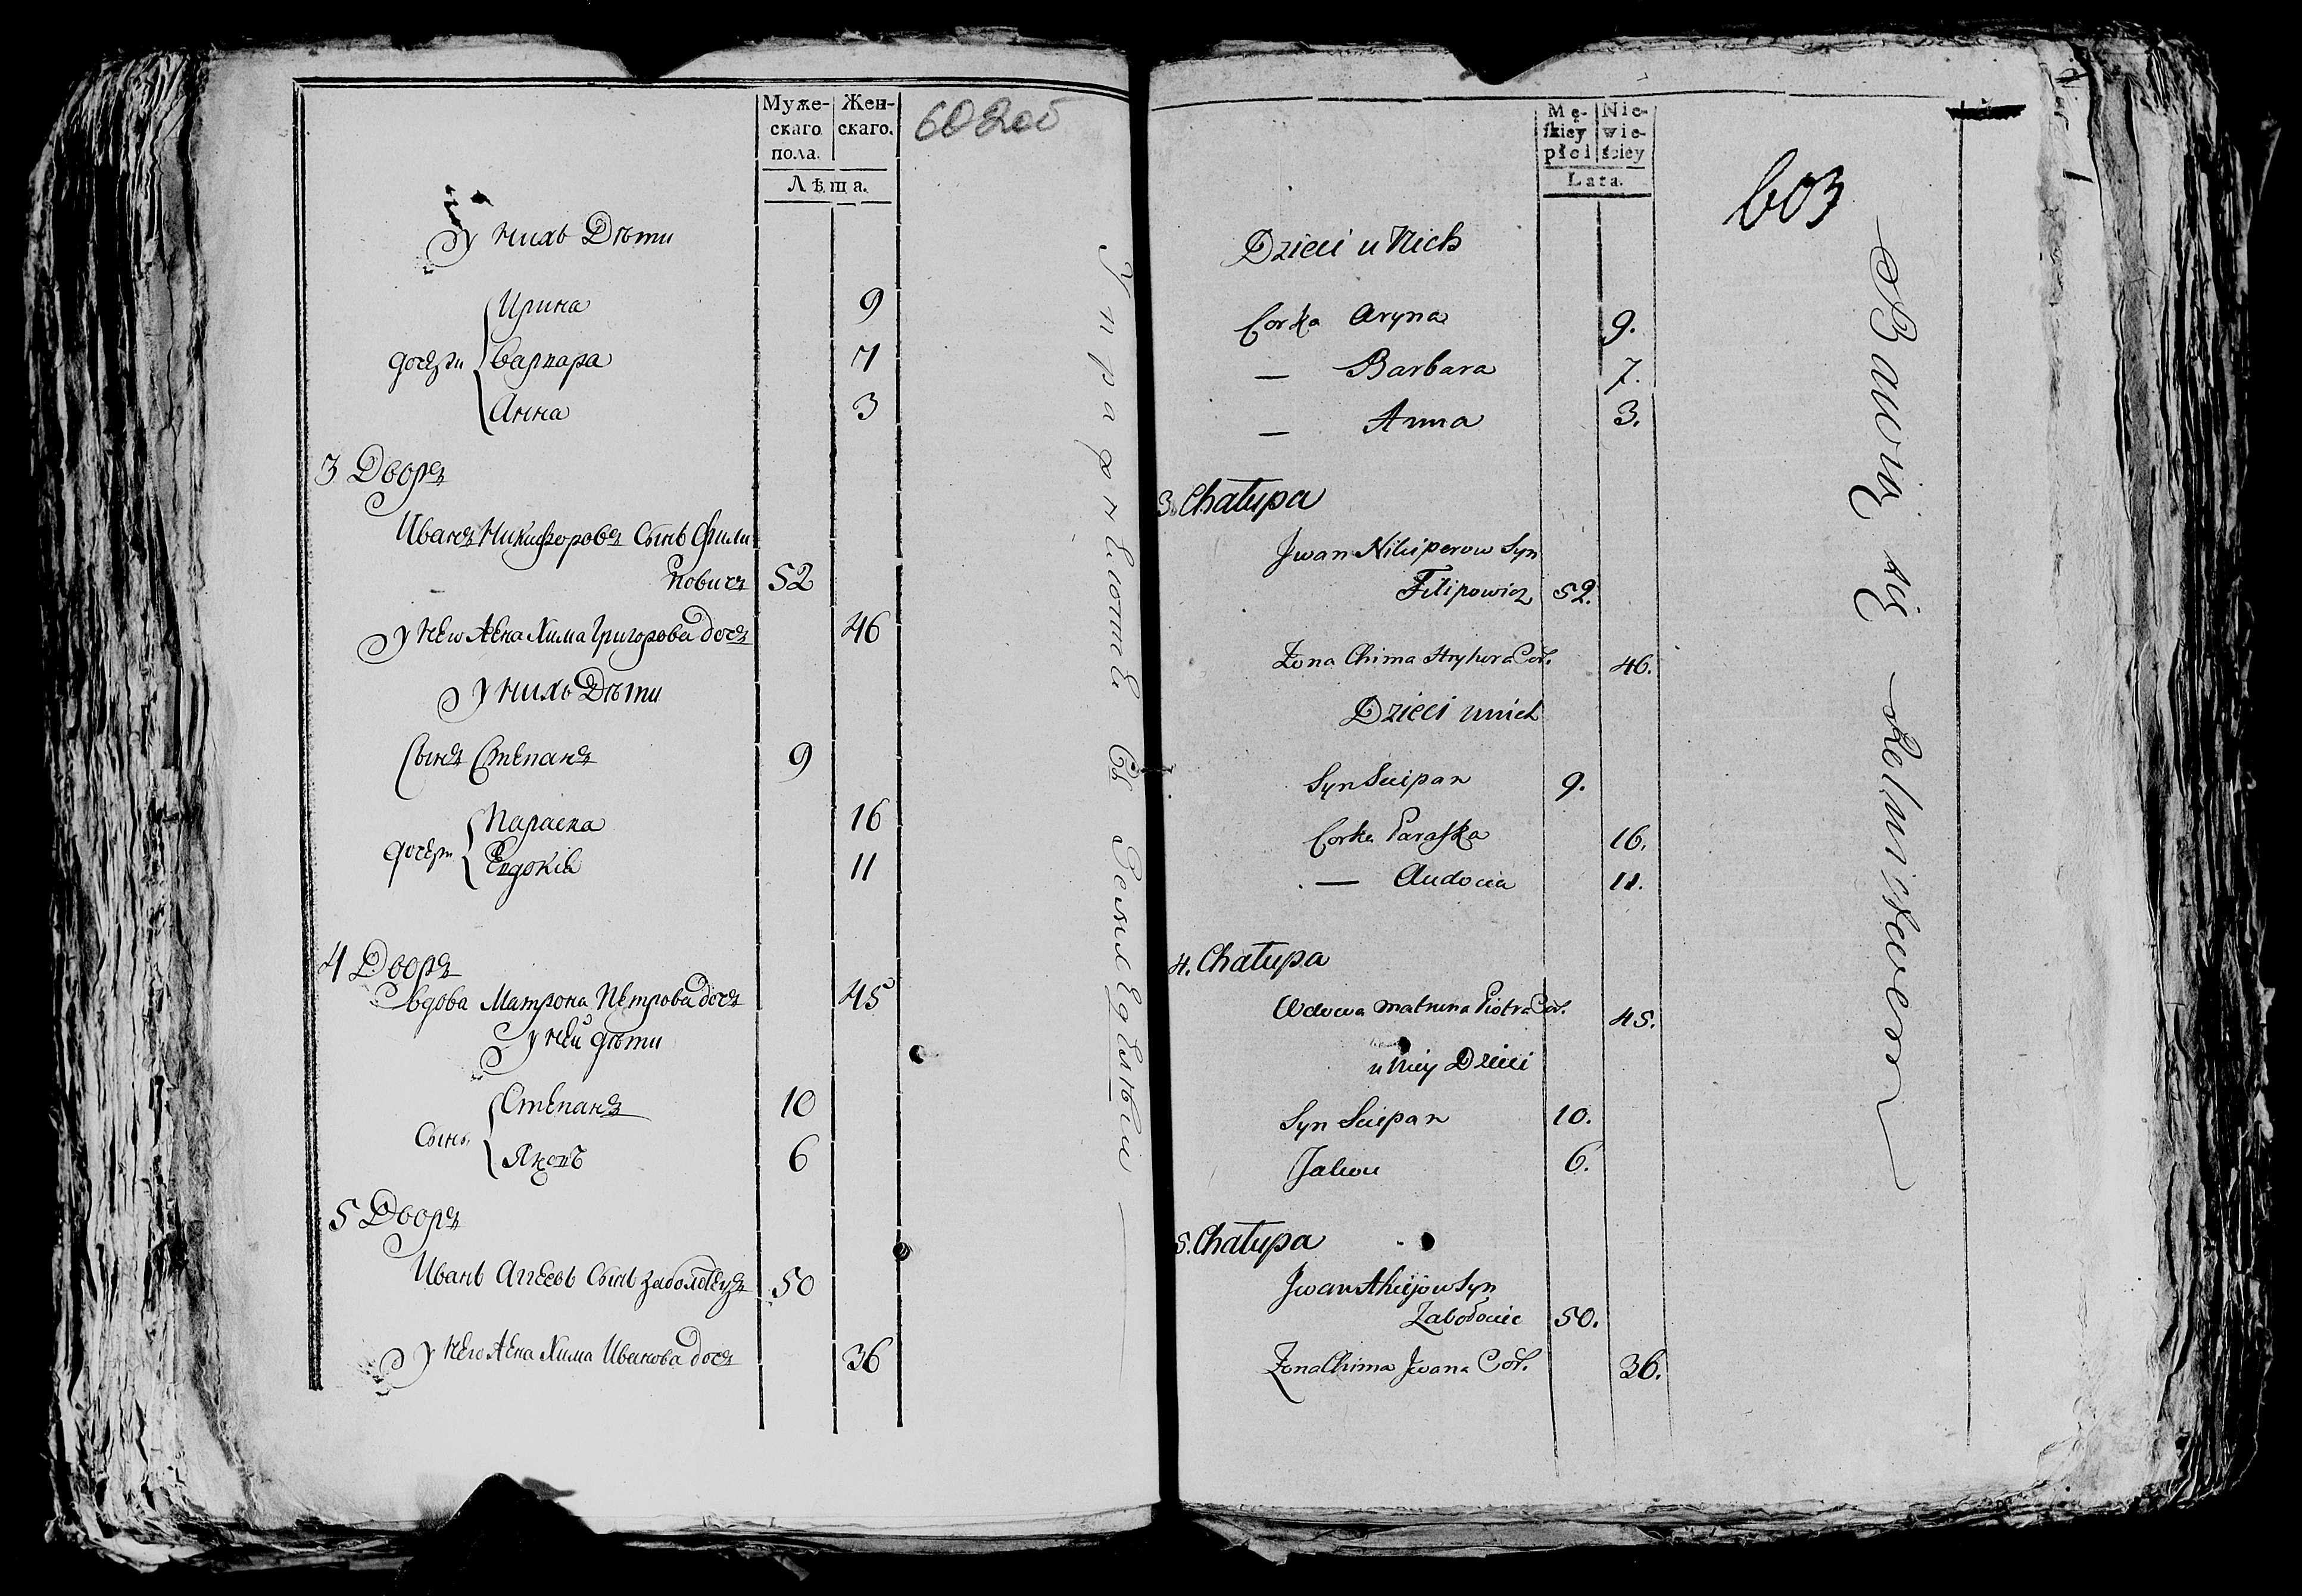 Муже-
скаго
пола.
Жен-
скаго.
Лѣта.
602 об
У нихъ Дѣти
дочери
Ирина 9
Варвара 7
Анна 3
3 Дворъ
Иванъ Никифоровъ Сынъ Фили
повичъ 52
У него жена Хима Григорова дочь 46
У нихъ Дѣти
Сынъ Степанъ 9
дочери
Параска 16
Евдокія 11
4 Дворъ
Вдова Матрона Петрова дочь 45
У ней дѣти
Сыны
Степанъ 10
Яковъ 6
5 Дворъ
Иванъ Агѣевъ Сынъ Заболотецъ 50
У него жена Хима Иванова дочь 36
Упражняются Въ Земледѣліи
Mę-
skiey
płci
Nie-
wie-
ściey
Lata.
603
Dzieci u Nich
Corka Aryna 9.
— Barbara 7.
— Anna 3.
3. Chałupa
Jwan Nikiperow Syn
Filipowicz 52.
Żona Chima Hryhora Cór. 46.
Dzieci u nich
Syn Sciepan 9.
Corka Paraska 16.
— Audocia 11.
4. Chałupa
Wdowa Matruna Piotra Cór. 45.
u Niey Dzieci
Syn Sciepan 10.
Jakow 6.
5. Chałupa
Jwan Ahiejow Syn
Zabołociec 50.
Żona Chima Jwana Cór. 36.
Bawią się Rolnictwem